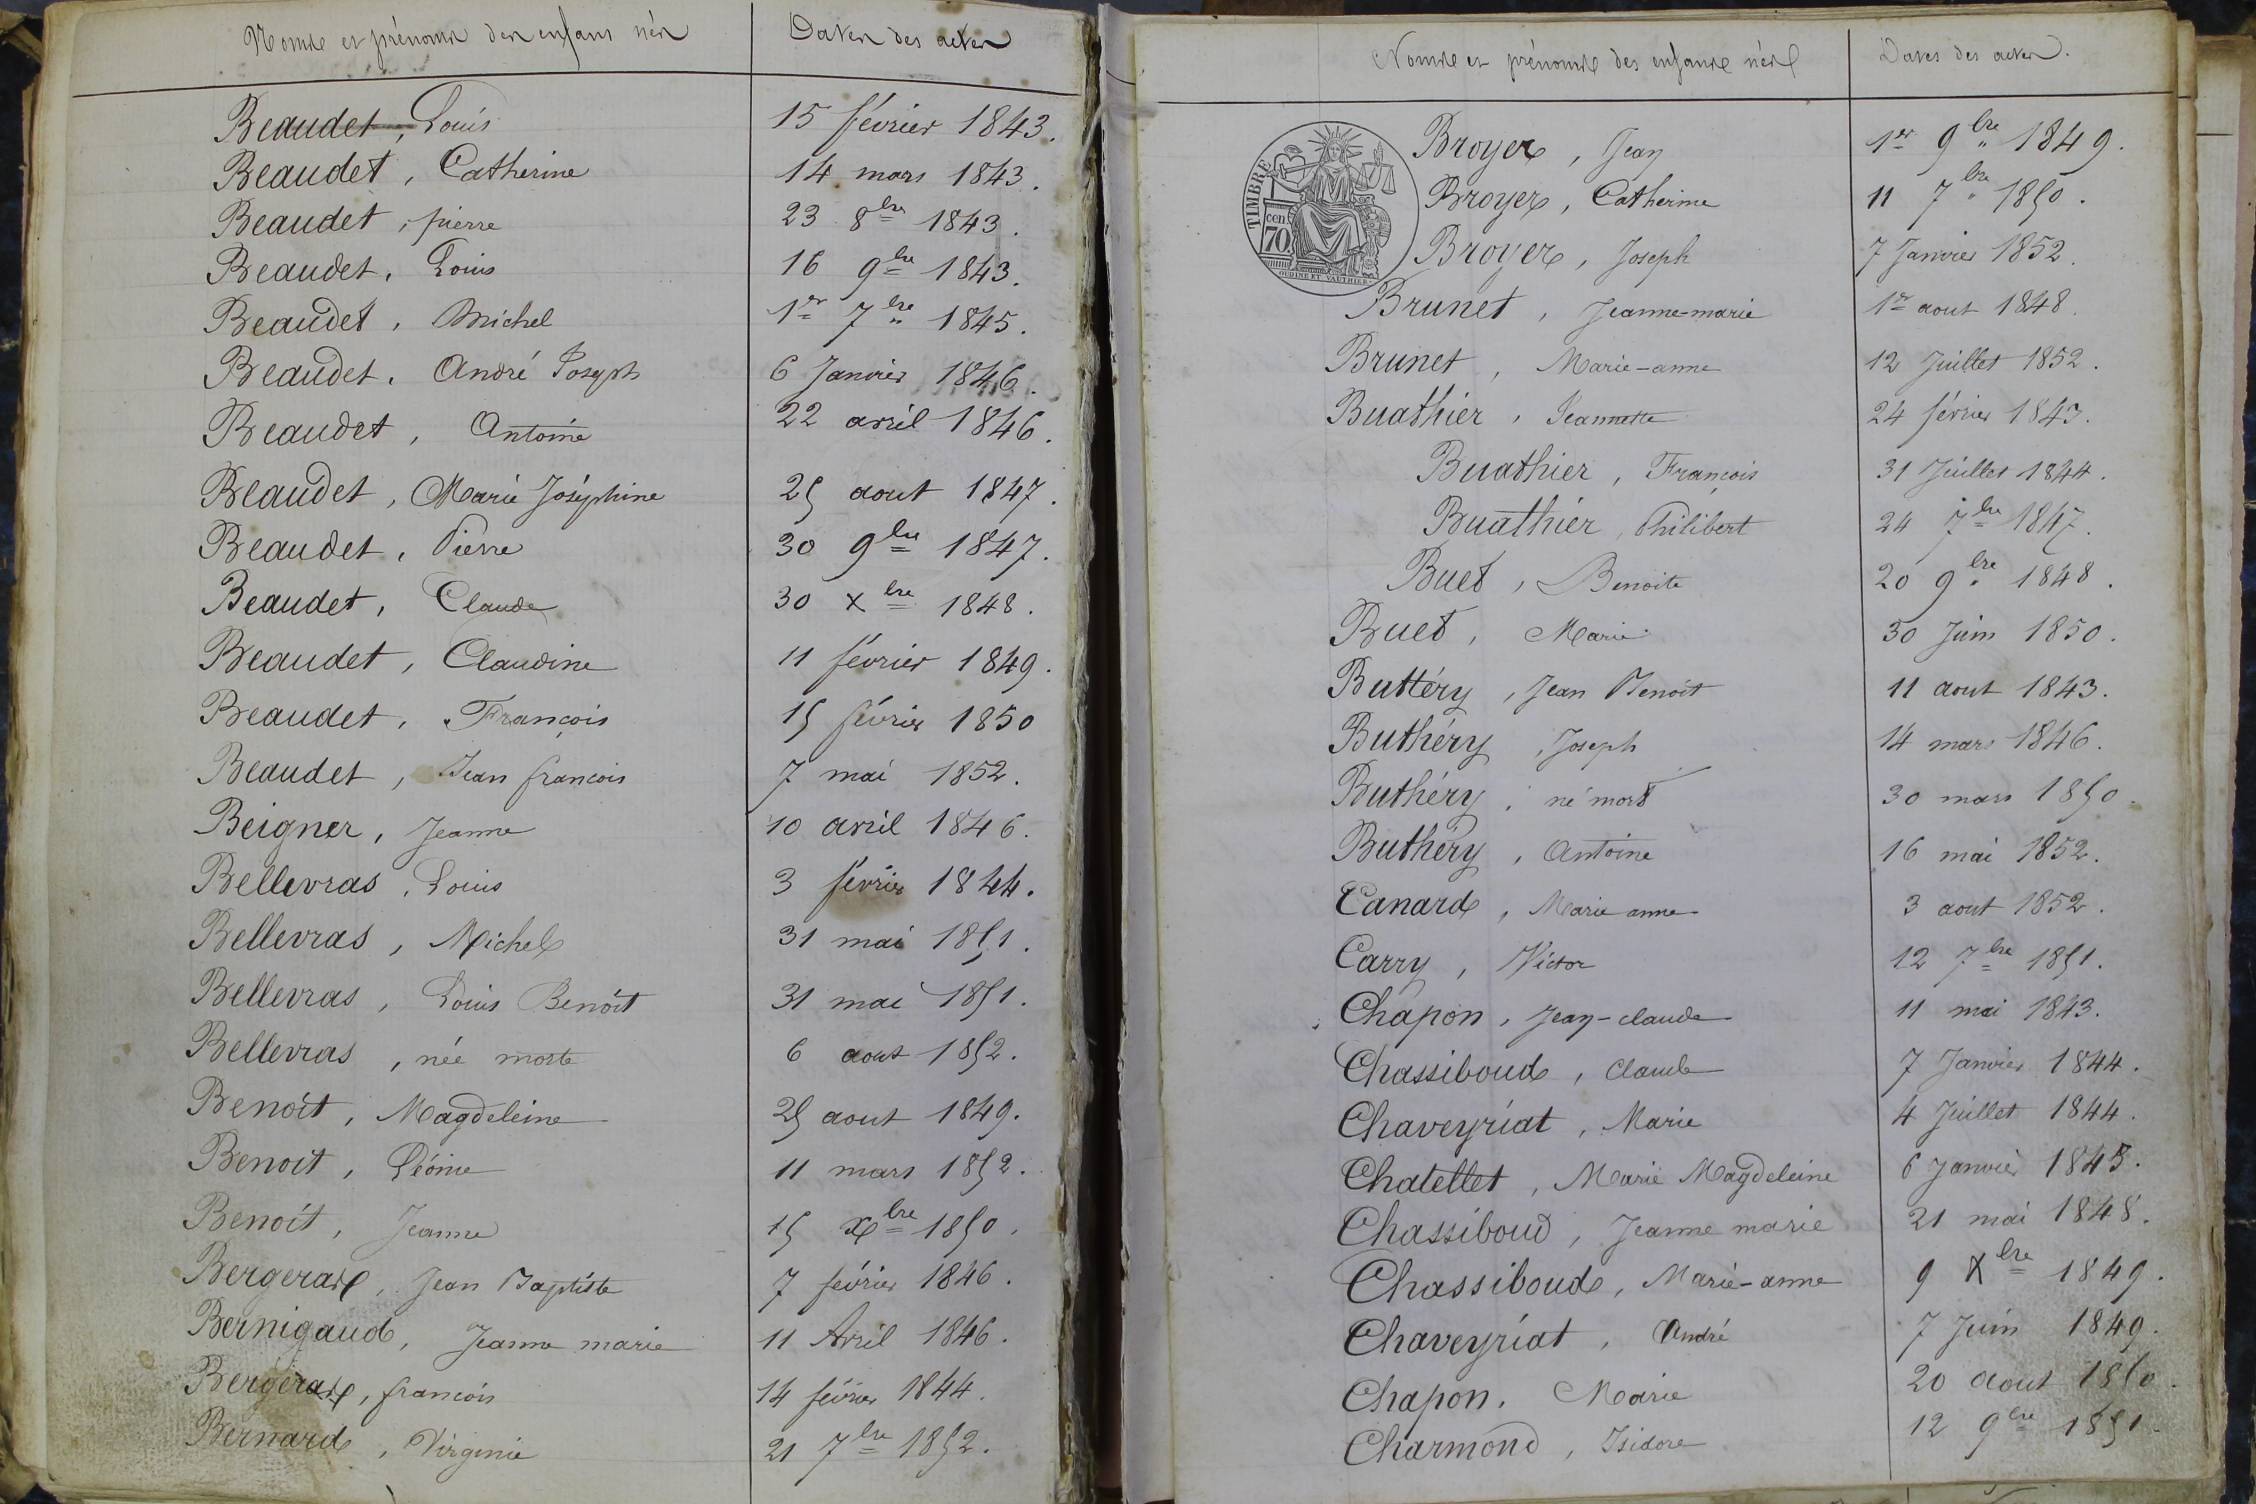 Noms et prénoms des enfans nés
Dates des actes
Beaudet, Louis 15 février 1843.
Beaudet, Catherine 14 mars 1843.
Beaudet, pierre 23 8bre 1843.
Beaudet, Louis 16 9bre 1843.
Beaudet, Michel 1er 7bre 1845.
Beaudet, André Joseph 6 Janvier 1846.
Beaudet, Antoine 22 avril 1846.
Beaudet, Marie Joséphine 25 aout 1847.
Beaudet, Pierre 30 9bre 1847.
Beaudet, Claude 30 Xbre 1848.
Beaudet, Claudine 11 février 1849.
Beaudet, François 15 février 1850
Beaudet, Jean françois 7 mai 1852.
Beigner, Jeanne 10 avril 1846.
Bellevras, Louis 3 février 1844.
Bellevras, Michel 31 mai 1851.
Bellevras, Louis Benoît 31 mai 1851.
Bellevras, née morte 6 aout 1852.
Benoît, Magdeleine 25 aout 1849.
Benoit, Léonie 11 mars 1852.
Benoît, Jeanne 15 Xbre 1850.
Bergerat, Jean Baptiste 7 février 1846.
Bernigaud, Jeanne marie 11 Avril 1846.
Bergerat, françois 14 février 1844.
Bernard, Virginie 21 7bre 1852.
Noms et prénoms des enfans nés
Dates des actes.
TIMBRE
70 cen
OUDINÉ ET VAUTHIER
Broyer, Jean 1er 9bre 1849.
Broyer, Catherine 11 7bre 1850.
Broyer, Joseph 7 Janvier 1852.
Brunet, Jeanne-marie 1er aout 1848.
Brunet, Marie-anne 12 Juillet 1852.
Buathier, Jeannette 24 février 1843.
Buathier, François 31 Juillet 1844.
Buathier, Philibert 24 7bre 1847.
Buet, Benoite 20 9bre 1848.
Buet, Marie 30 Juin 1850.
Buttéry, Jean Benoît 11 aout 1843.
Buthéry, Joseph 14 mars 1846.
Buthéry, né mort 30 mars 1850.
Buthéry, Antoine 16 mai 1852.
Canard, Marie anne 3 aout 1852.
Carry, Victor 12 7bre 1851.
Chapon, Jean-claude 11 mai 1843.
Chassiboud, Claude 7 Janvier 1844.
Chaveyriat, Marie 4 Juillet 1844.
Chatellet, Marie Magdeleine 6 Janvier 1845.
Chassiboud, Jeanne marie 21 mai 1848.
Chassiboud, Marie-anne 9 Xbre 1849.
Chaveyriat, André 7 Juin 1849.
Chapon. Marie 20 aout 1850.
Charmond, Isidore 12 9bre 1851.